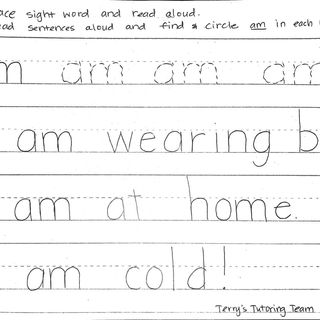 ace sight word and read aloud.
ead sentences aloud and find & circle am in each
m am am am
am wearing b
am at home.
am cold!
Terry's Tutoring Team